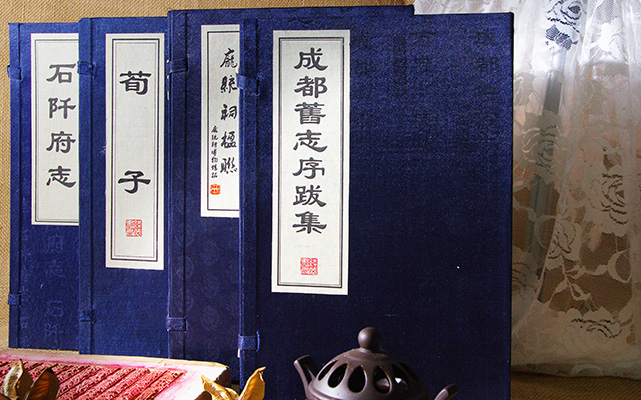 石阡府志
荀子
龐統祠楹聯
成都舊志序跋集